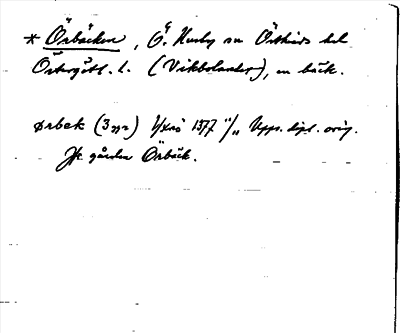 * Örbäcken, Ö. Husby sn Östkinds hd
Östergötl. l. (Vikbolandet), en bäck.
ørbek (3 ggr) Yxnö 1377 11/11 Upps. dipl. orig.
Jfr gården Örbäck.